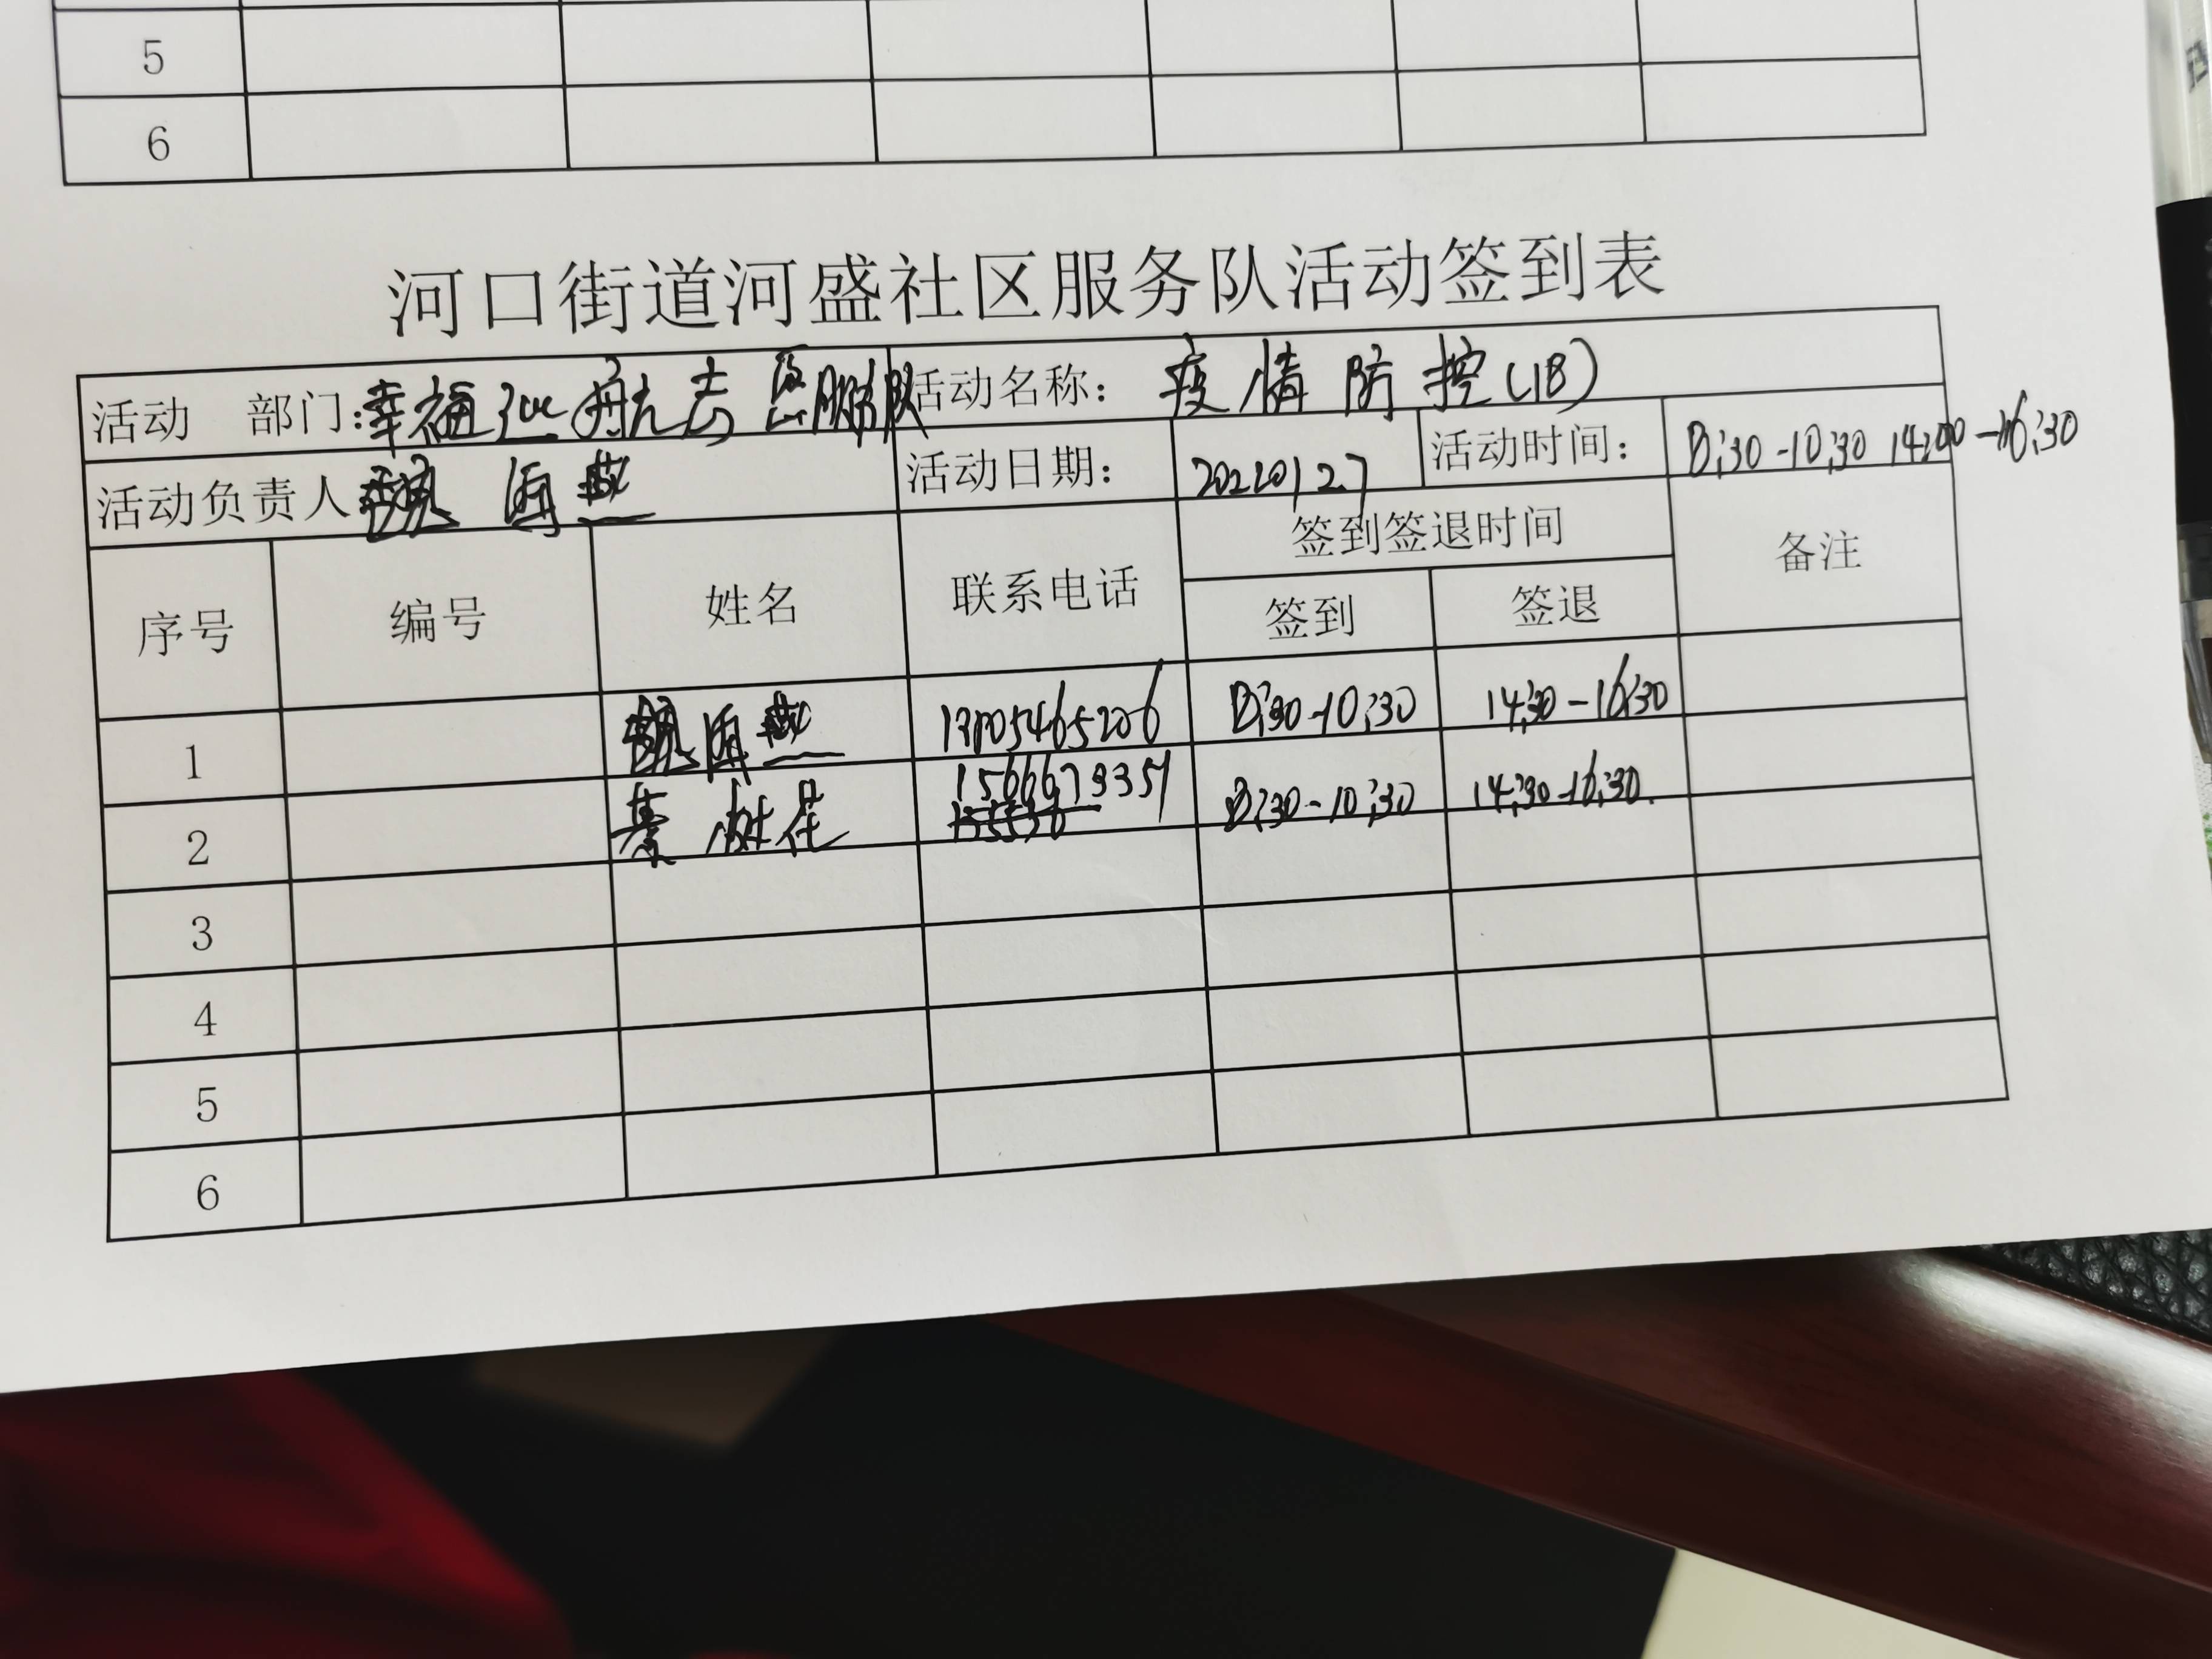 5
6
河口街道河盛社区服务队活动签到表
活动 部门:幸福巡航志愿服务队 活动名称: 疫情防控(18)
活动负责人 魏海燕 活动日期: 20220127 活动时间: 8:30-10:30 14:00-16:30
序号 编号 姓名 联系电话 签到签退时间 备注
签到 签退
1 魏海燕 8:30-10:30 14:30-16:30
2 树花 15666793351 8:30-10:30 14:30-16:30
3
4
5
6